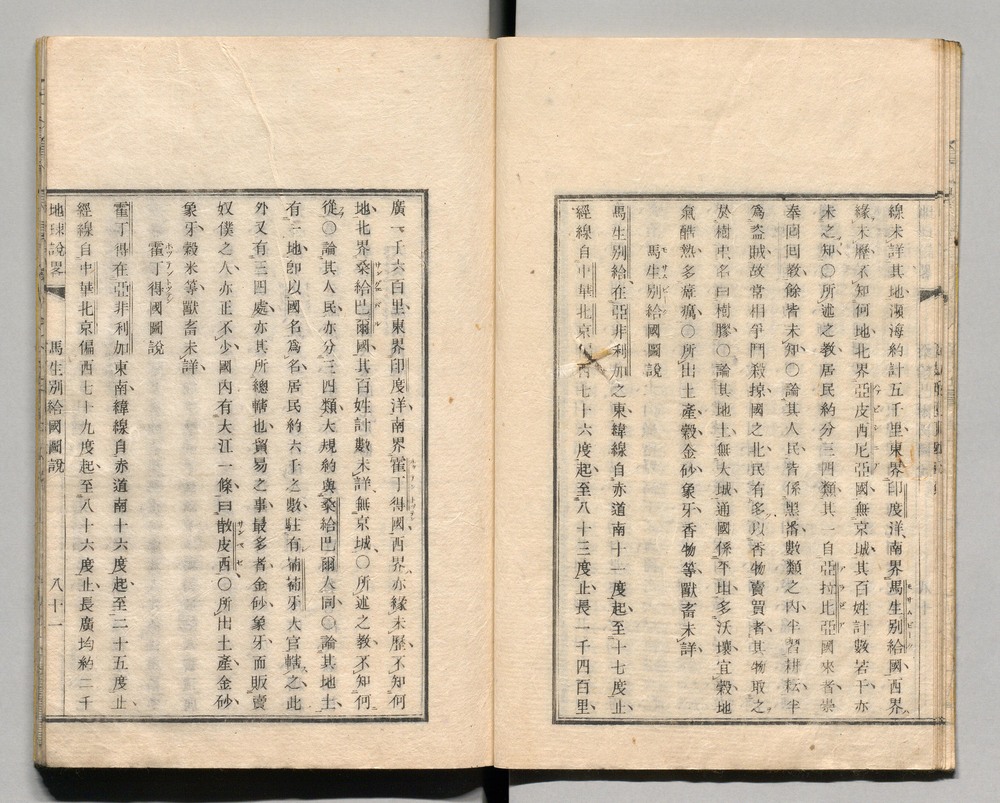 線未詳其地瀕海約計五千里東界印度洋南界馬生别給國西界
緣未歷不知何地北界亞皮西尼亞國無京城其百姓計數若干亦
未之知○所述之教居民約分三四類其一自亞拉比亞國來者崇
奉回回教餘皆未知○論其人民皆係黑番數類之内半習耕耘半
為盗賊故常相爭鬥殺掠國之北民有多以香物賣買者其物取之
於樹中名曰樹膠○論其地土無大城通國係平坦多沃壤宜榖地
氣酷熱多瘴癘○所出土產榖金砂象牙香物等獸畜未詳
馬生别給國圖說
馬生别給在亞非利加之東緯線自赤道南十一度起至十七度止
經線自中華北京偏西七十六度起至八十三度止長一千四百里
廣一千六百里東界印度洋南界霍丁得國西界亦緣未歷不知何
地北界桑給巴爾國其百姓計數未詳無京城○所述之教不知何
從○論其人民亦分三四類大規約與桑給巴爾人同○論其地土
有三地卽以國名為名居民約六千之數駐有補牙大官轄之此
外又有三四處亦其所總轄也貿易之事最多者金砂象牙而販賣
奴僕之人亦正不少國内有大江一條曰散皮西○所出土產金砂
象牙榖米等獸畜未詳
霍丁得國圖說
霍丁得在亞非利加東南緯線自赤道南十六度起至二十五度止
經線自中華北京偏西七十九度起至八十六度止長廣均約二千
地球說畧 馬生别給國圖說 八十一